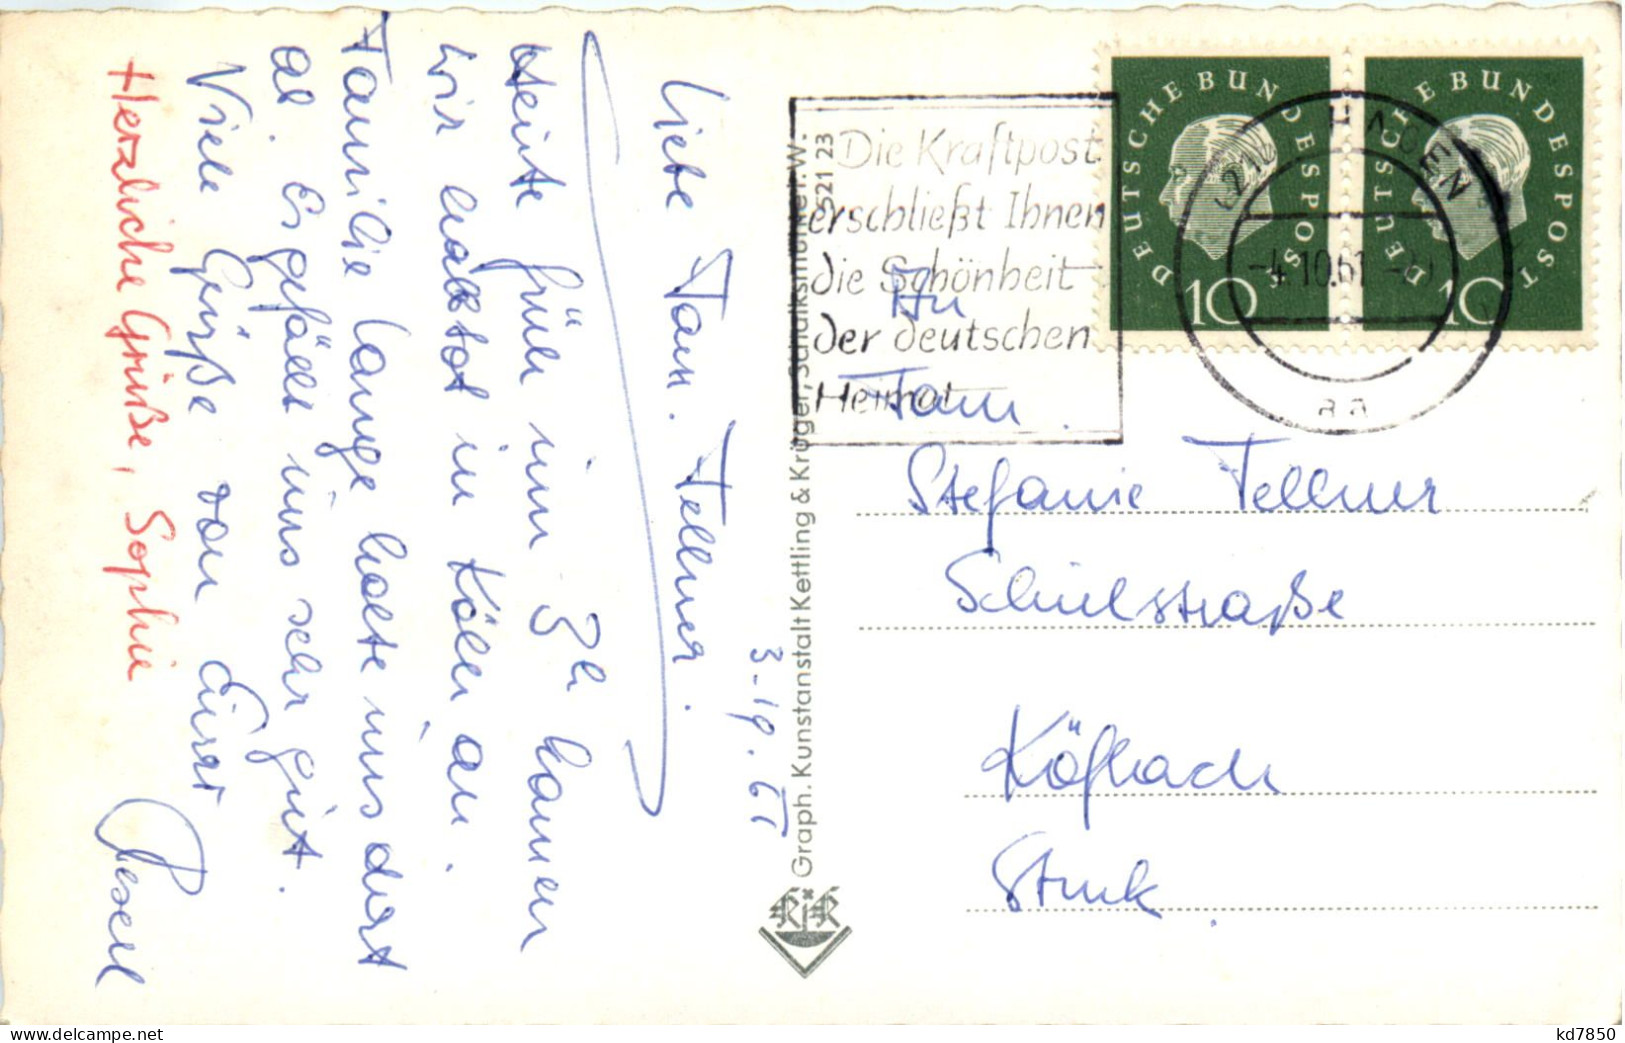 3.10.61
Liebe Fam. Fellner.
Heute früh um 3h kamen
wir halbtot in Köln an.
Familie Lange holte uns dort
ab. Es gefällt uns sehr gut.
Viele Grüße von Eurer
Reserl
Herzliche Grüße, Sophie
Graph. Kunstanstalt Kettling & Krüger, Schalksmühle i. W. S21 23
KiK
Die Kraftpost
erschließt Ihnen
die Schönheit
der deutschen
Heimat
DEUTSCHE BUNDESPOST
10
DEUTSCHE BUNDESPOST
10
HAGEN
-4.10.61
aa
An
Fam.
Stefanie Fellner
Schulstraße
Köflach
Stmk.
delcampe.net
kd7850